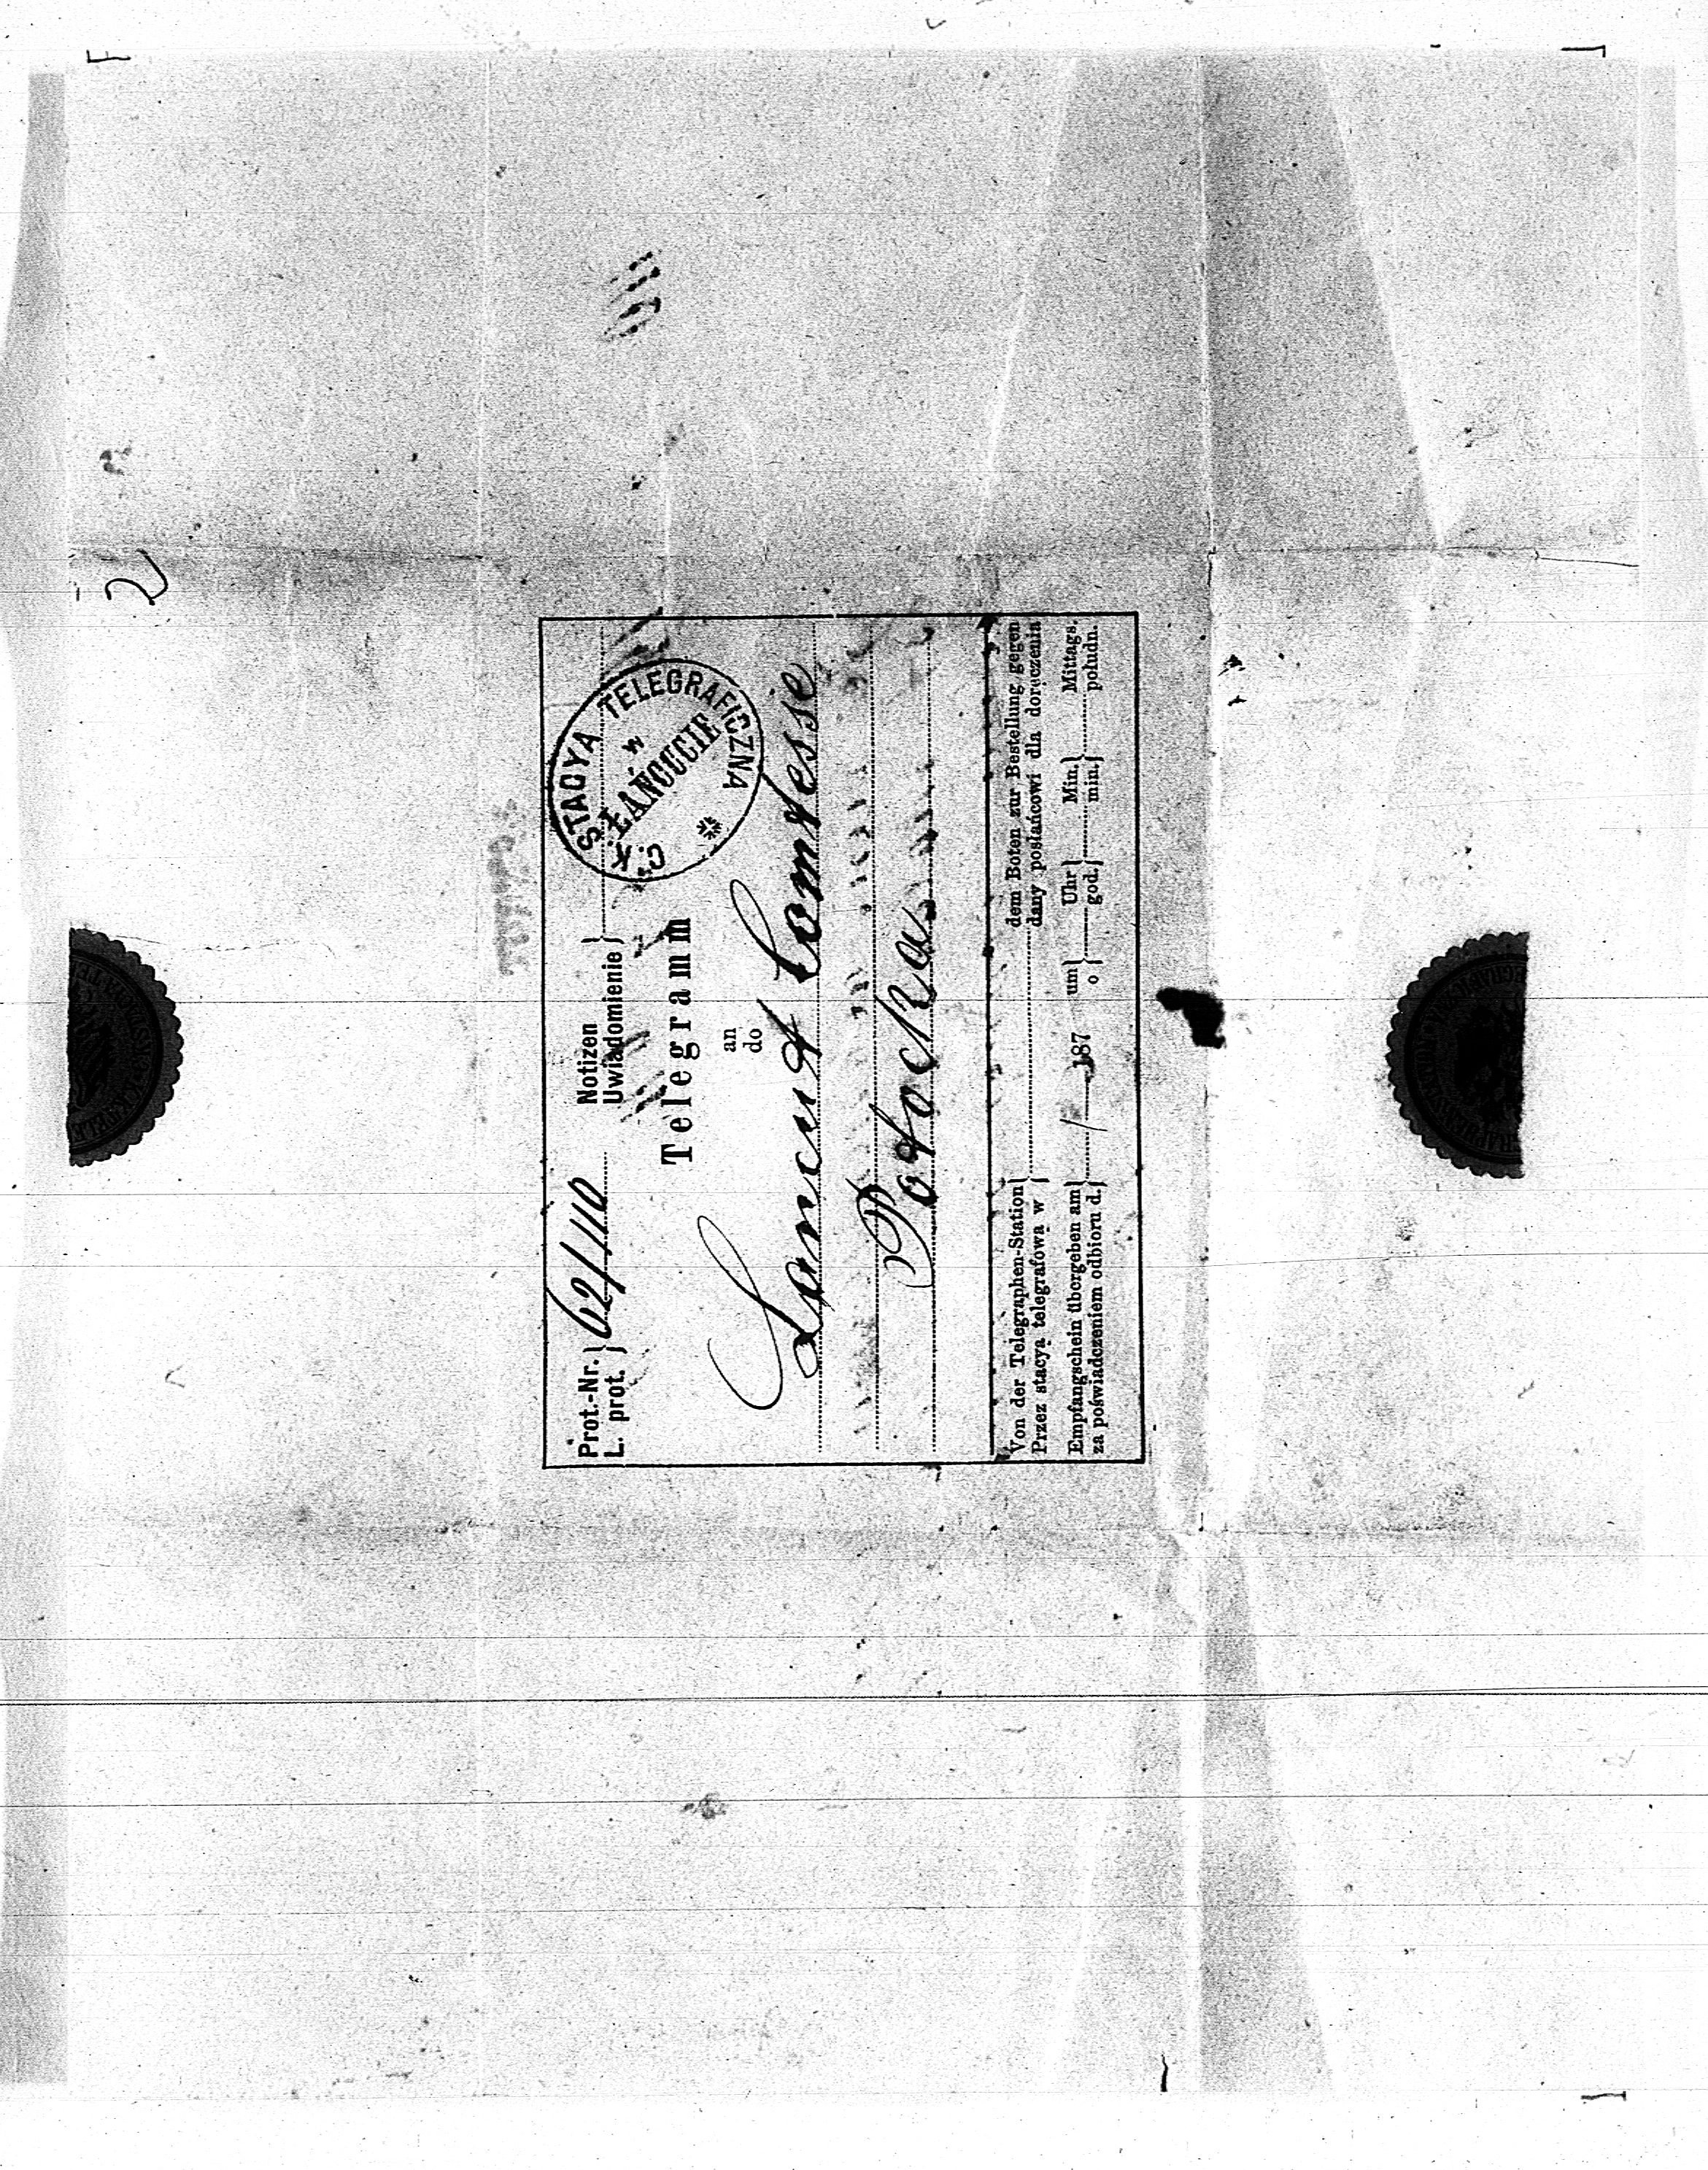 Prot.-Nr. } 62/110 Notizen }
L. prot. } Uwiadomienie }
C. K. STACYA TELEGRAFICZNA
w
ŁAŃCUCIE
Telegramm
an
do
Lancut Comtesse
Potocka
Von der Telegraphen-Station } dem Boten zur Bestellung gegen
Przez stacyą telegrafowa w } dany posłańcowi dla doręczenia
Empfangschein übergeben am } / 187 um } Uhr } Min. } Mittags.
za poświadczeniem odbioru d. } o } god. } min. } południ.